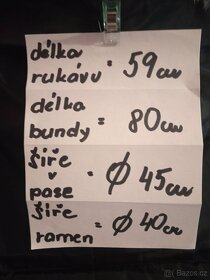 délka
rukávu = 59 cm
délka
bundy = 80 cm
šíře
v
pase = Ø 45 cm
šíře
ramen = Ø 40 cm
Bazoš.cz